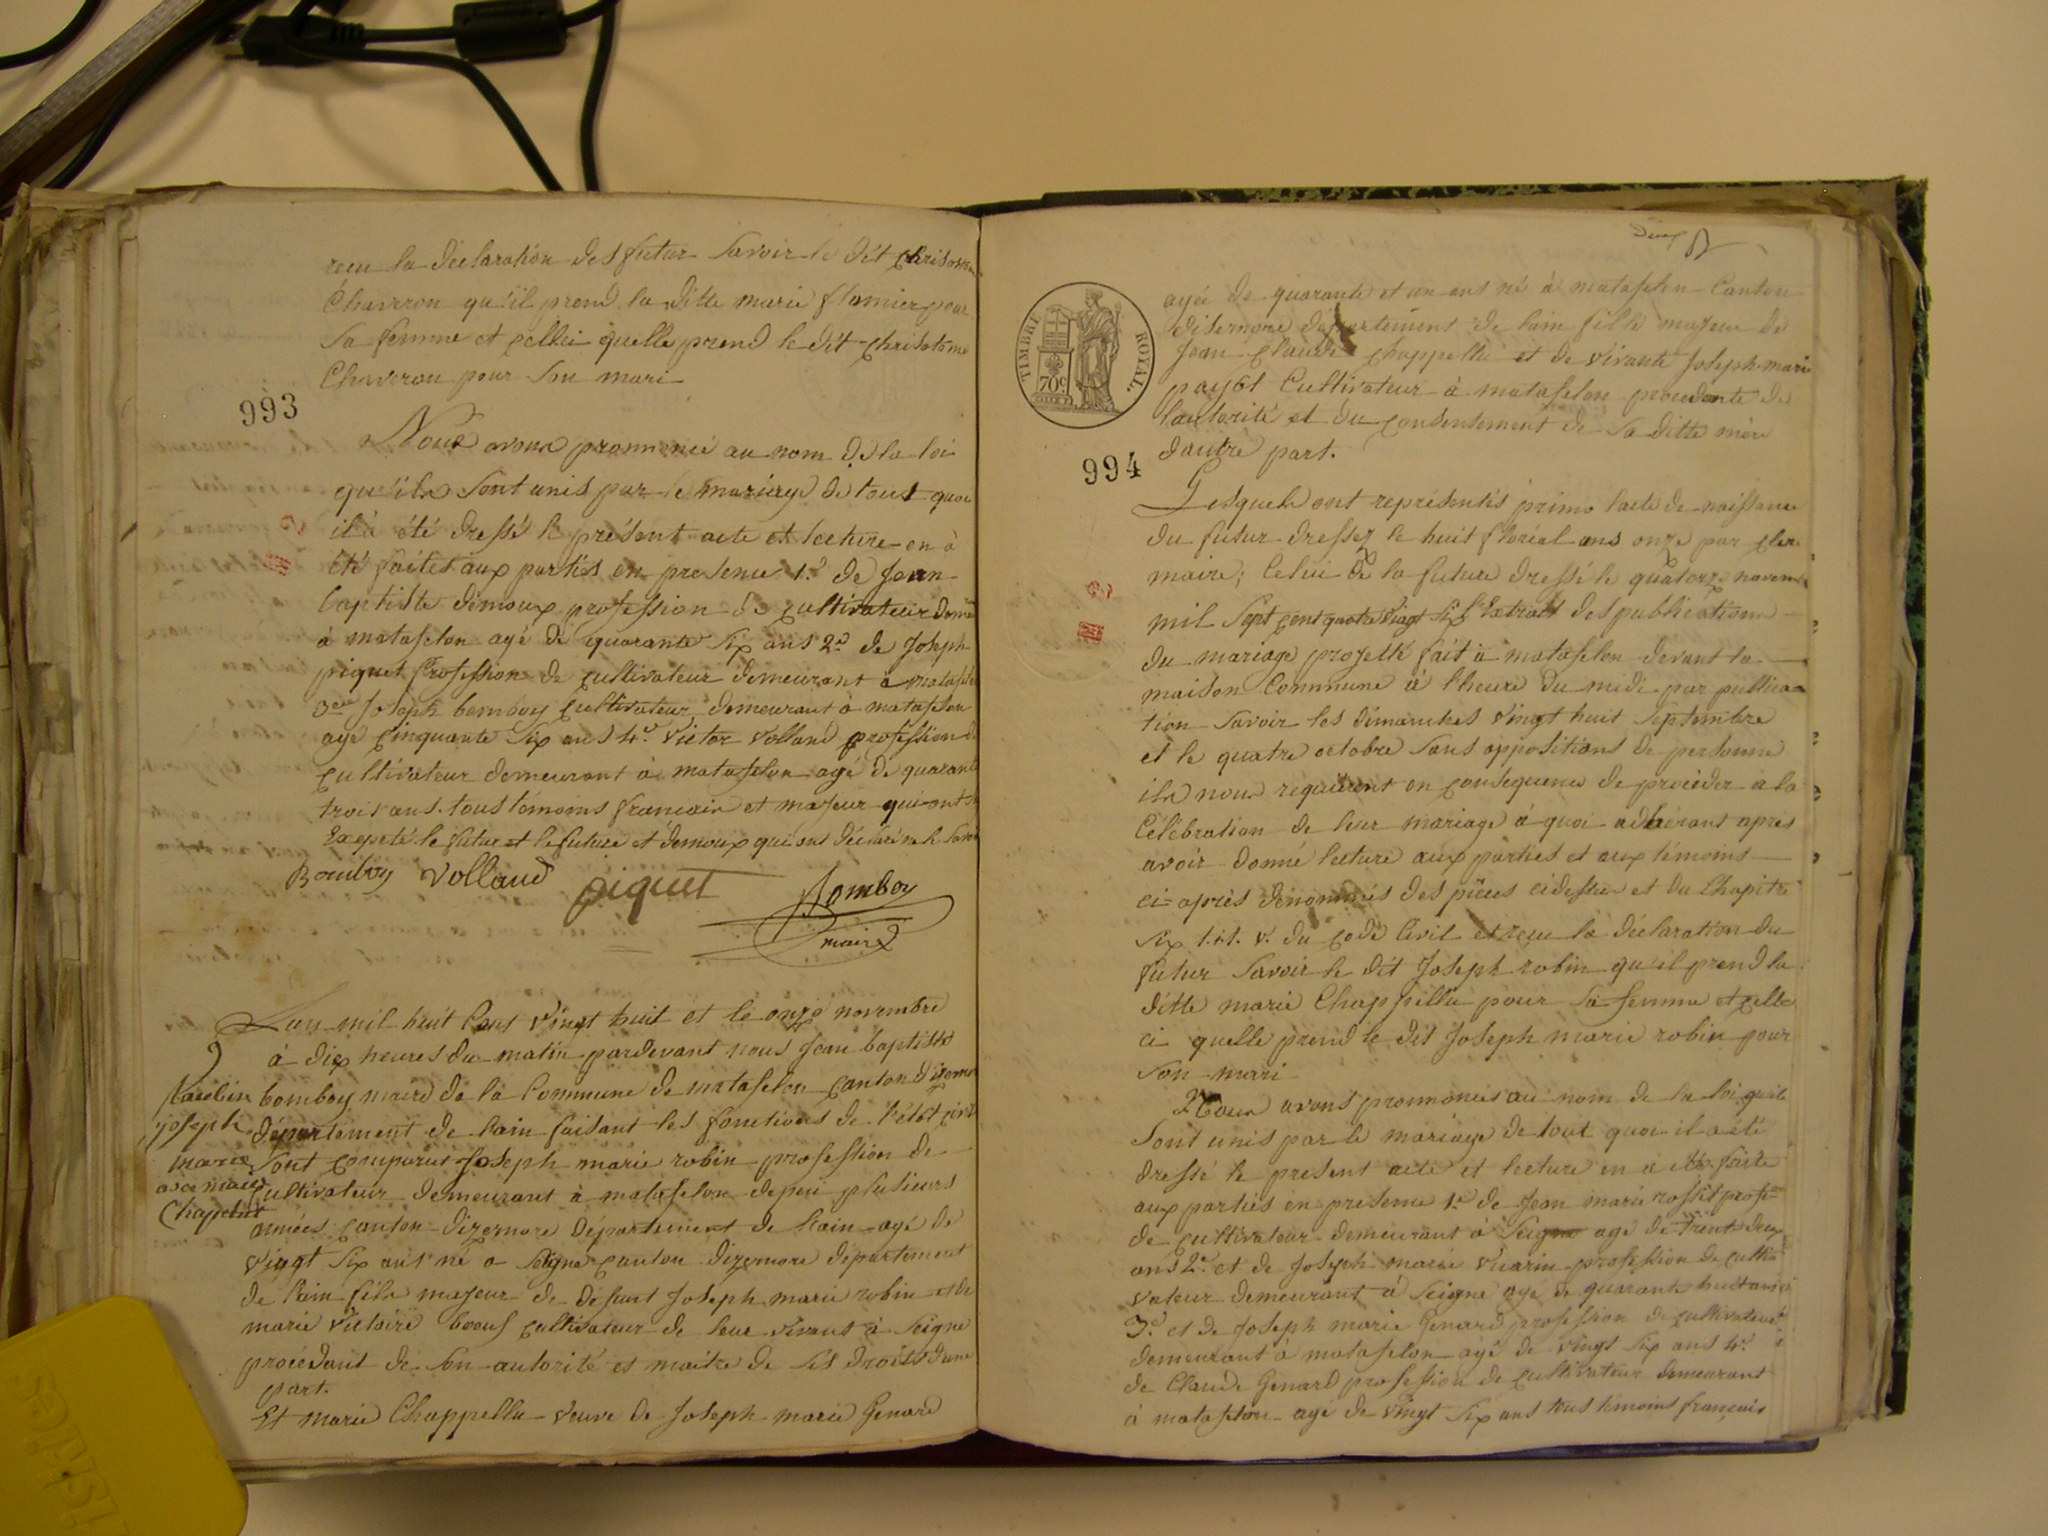 reçu la déclaration des futur Savoir le dit Chrisos
Chavron qu'il prend la ditte marie flamier pour
Sa femme et celleci quelle prend le dit Chrisotome
Chaveron pour Son mari
993
Nous avons prononcé au nom de la loi
qu'ils Sont unis par le mariage de tous quoi
il à été dressé le présent acte et lecture en à
été faites aux partis en presence 1º de Jean
baptiste démoux profession de cultivateur dem
à matafelon agé de quarante Six ans 2º de Joseph
piquet profession de cultivateur demeurant à matafel
3eme Joseph bomboy cultivateur demeurant à matafelon
agé cinquante Six ans 4º victor volland profession de
cultivateur demeurant à matafelon agé de quarante
trois ans. tous témoins francais et majeur qui ont
Excepté le futur et le future et démoux qui ont déclaré ne le Savoir
Bomboy Volland piquet Bomboy
maire
Lan mil huit Cent Vingt huit et le onze novembre
à dix heures du matin pardevant nous Jean baptiste
bomboy maire de la Commune de matafelon Canton dizerno
département de lain faisant les fonctions de l'état civil
Sont comparut Joseph marie robin profession de
cultivateur demeurant à matafelon depui plusieurs
années canton dizernore Département de lain agé de
vingt Six ans né a Seigne canton dizernore département
de lain fils majeur de defunt Joseph marie robin et de
marie victoire boeuf cultivateur de leur vivant à Seigne
procédant de Son autorité et maitre de Ses droits dune
part.
Et marie Chappellu veuve de Joseph marie Genard
joseph
marie
avec marie
Chapelut
Deux
TIMBRE ROYAL.
70c
agée de quarante et un ans né à matafelon Canton
disernore département de lain fille majeur de
Jean Claude Chappellu et de vivante Joseph marie
payot Cultivateur à matafelon procedante de
l'autorité et du consentement de Sa ditte mère
dautre part.
994
Lesquels ont représentés primo lacte de naissance
du futur dressez le huit floréal ans onze par
maire; Celui de la future dressé le quatorze novem
mil Sept cent quatre vingt Six l'Extrait des publications
du mariage projetté fait à matafelon devant la
maison Commune à l'heure du midi par publica
tion Savoir les dimanches vingt huit Septembre
et le quatre octobre Sans oppositions de personne
ils nous requierent en consequence de procéder a la
Célébration de leur mariage à quoi adhérant apres
avoir donné lecture aux parties et aux témoins
ci-après dénommés des pièces cidessus et du Chapitre
Six tit. v. du code Civil et reçu la déclaration du
futur Savoir le dit Joseph robin qu'il prend la
ditte marie Chappellu pour Sa femme et celle
ci quelle prend le dit Joseph marie robin pour
Son mari
Nous avons prononcés au nom de la loi quils
Sont unis par le mariage de tout quoi il a été
dressé le present acte et lecture en a été faite
aux parties en présence 1º de Jean marie rosset profe
de cultivateur demeurant à Seigne agé de trente deux
ans 2º et de Joseph marie vuarin profession de culti
vateur demeurant à Seigne agé de quarante huit ans
3º et de Joseph marie Genard profession de cultivateur
demeurant à matafelon agé de vingt Six ans 4º
de Claude Genard profession de cultivateur demeurant
à matafelon agé de vingt Six ans tous témoins français